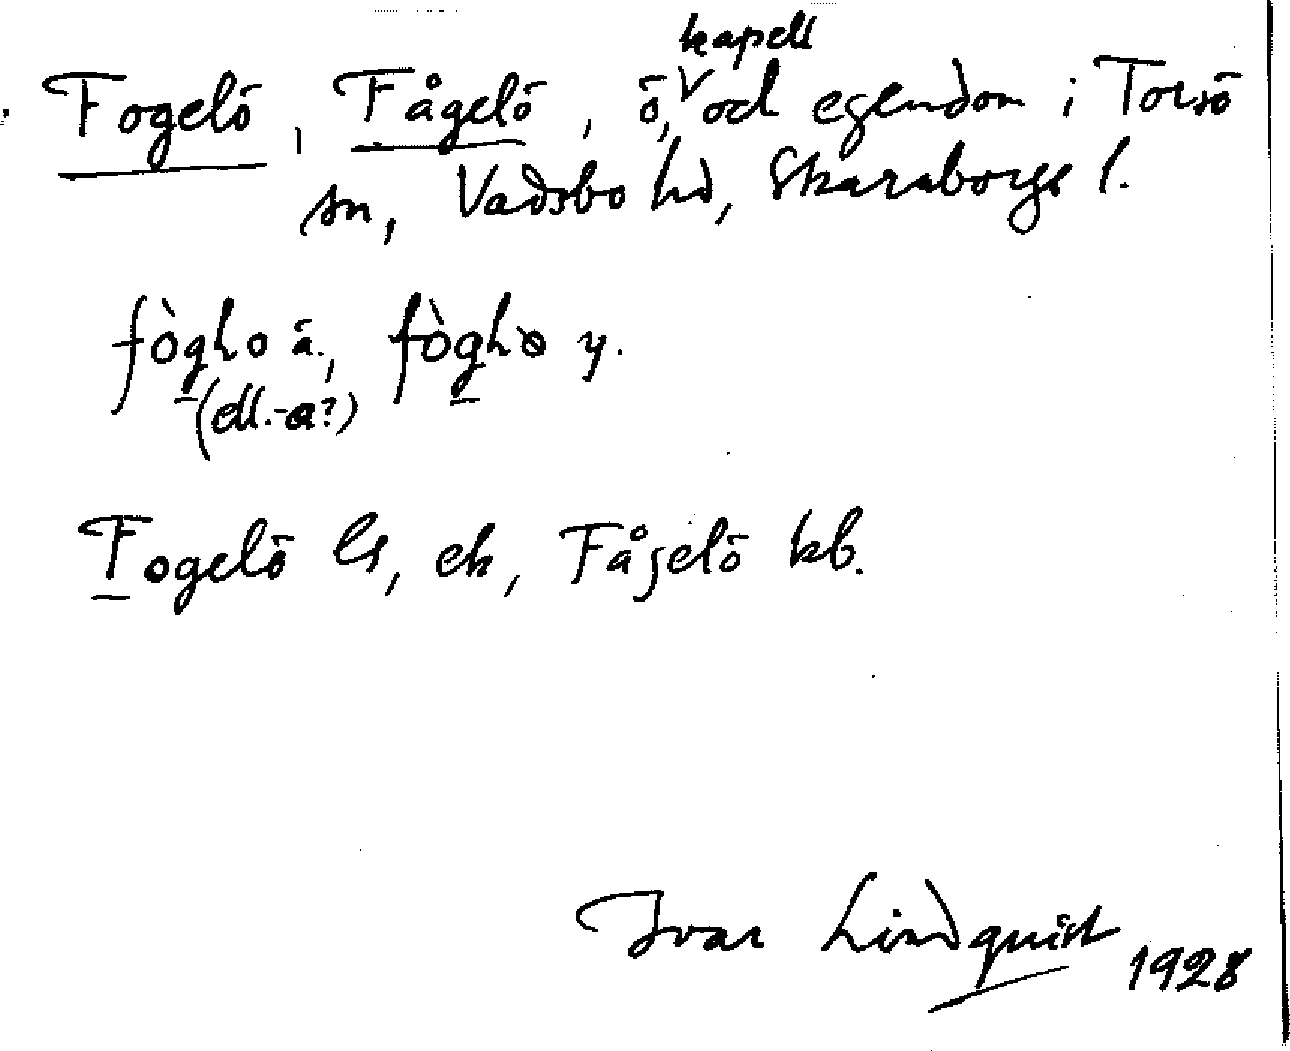 kapell
Fogelö, Fågelö, ö, och egendom i Torsö
sn, Vadsbo hd, Skaraborgs l.
fògho ä.,
(ell. -a?)
y.
Fogelö ek, Fågelö kb.
Ivar Lindquist 1928